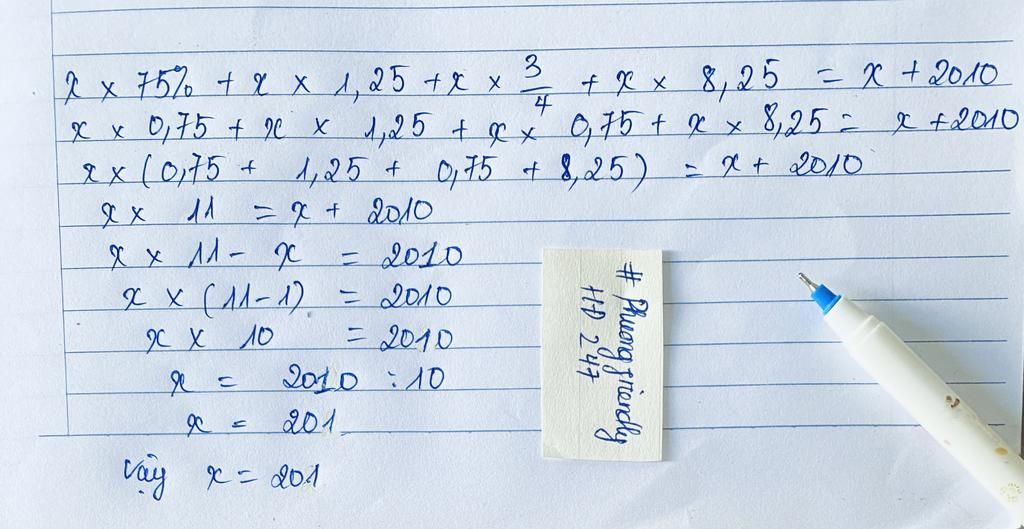 x × 75% + x × 1,25 + x × 3/4 + x × 8,25 = x + 2010
x × 0,75 + x × 1,25 + x × 0,75 + x × 8,25 = x + 2010
x × (0,75 + 1,25 + 0,75 + 8,25) = x + 2010
x × 11 = x + 2010
x × 11 - x = 2010
x × (11-1) = 2010
x × 10 = 2010
x = 2010 : 10
x = 201
Vậy x = 201
# Phuong friendly
HD 247